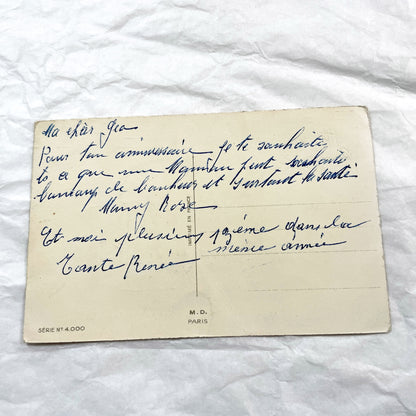 Ma chèr Geo
Pour ton anniversaire je te souhaite
to a que une Maman peut souhaiter
beaucoup de bonheur et surtout la santé
Mamy Rose
Et moi plusieurs poème dans la
même année
Tante Renée
IMPRIMÉ EN FRANCE
M. D.
PARIS
SÉRIE N° 4.000